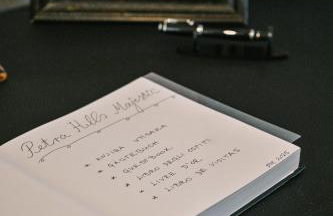 Petra Hills Majestic
* KNJIGA UTISAKA
* GÄSTEBUCH
* GUESTBOOK
* LIBRO DEGLI OSPITI
* LIVRE D'OR
* LIBRO DE VISITAS
2025